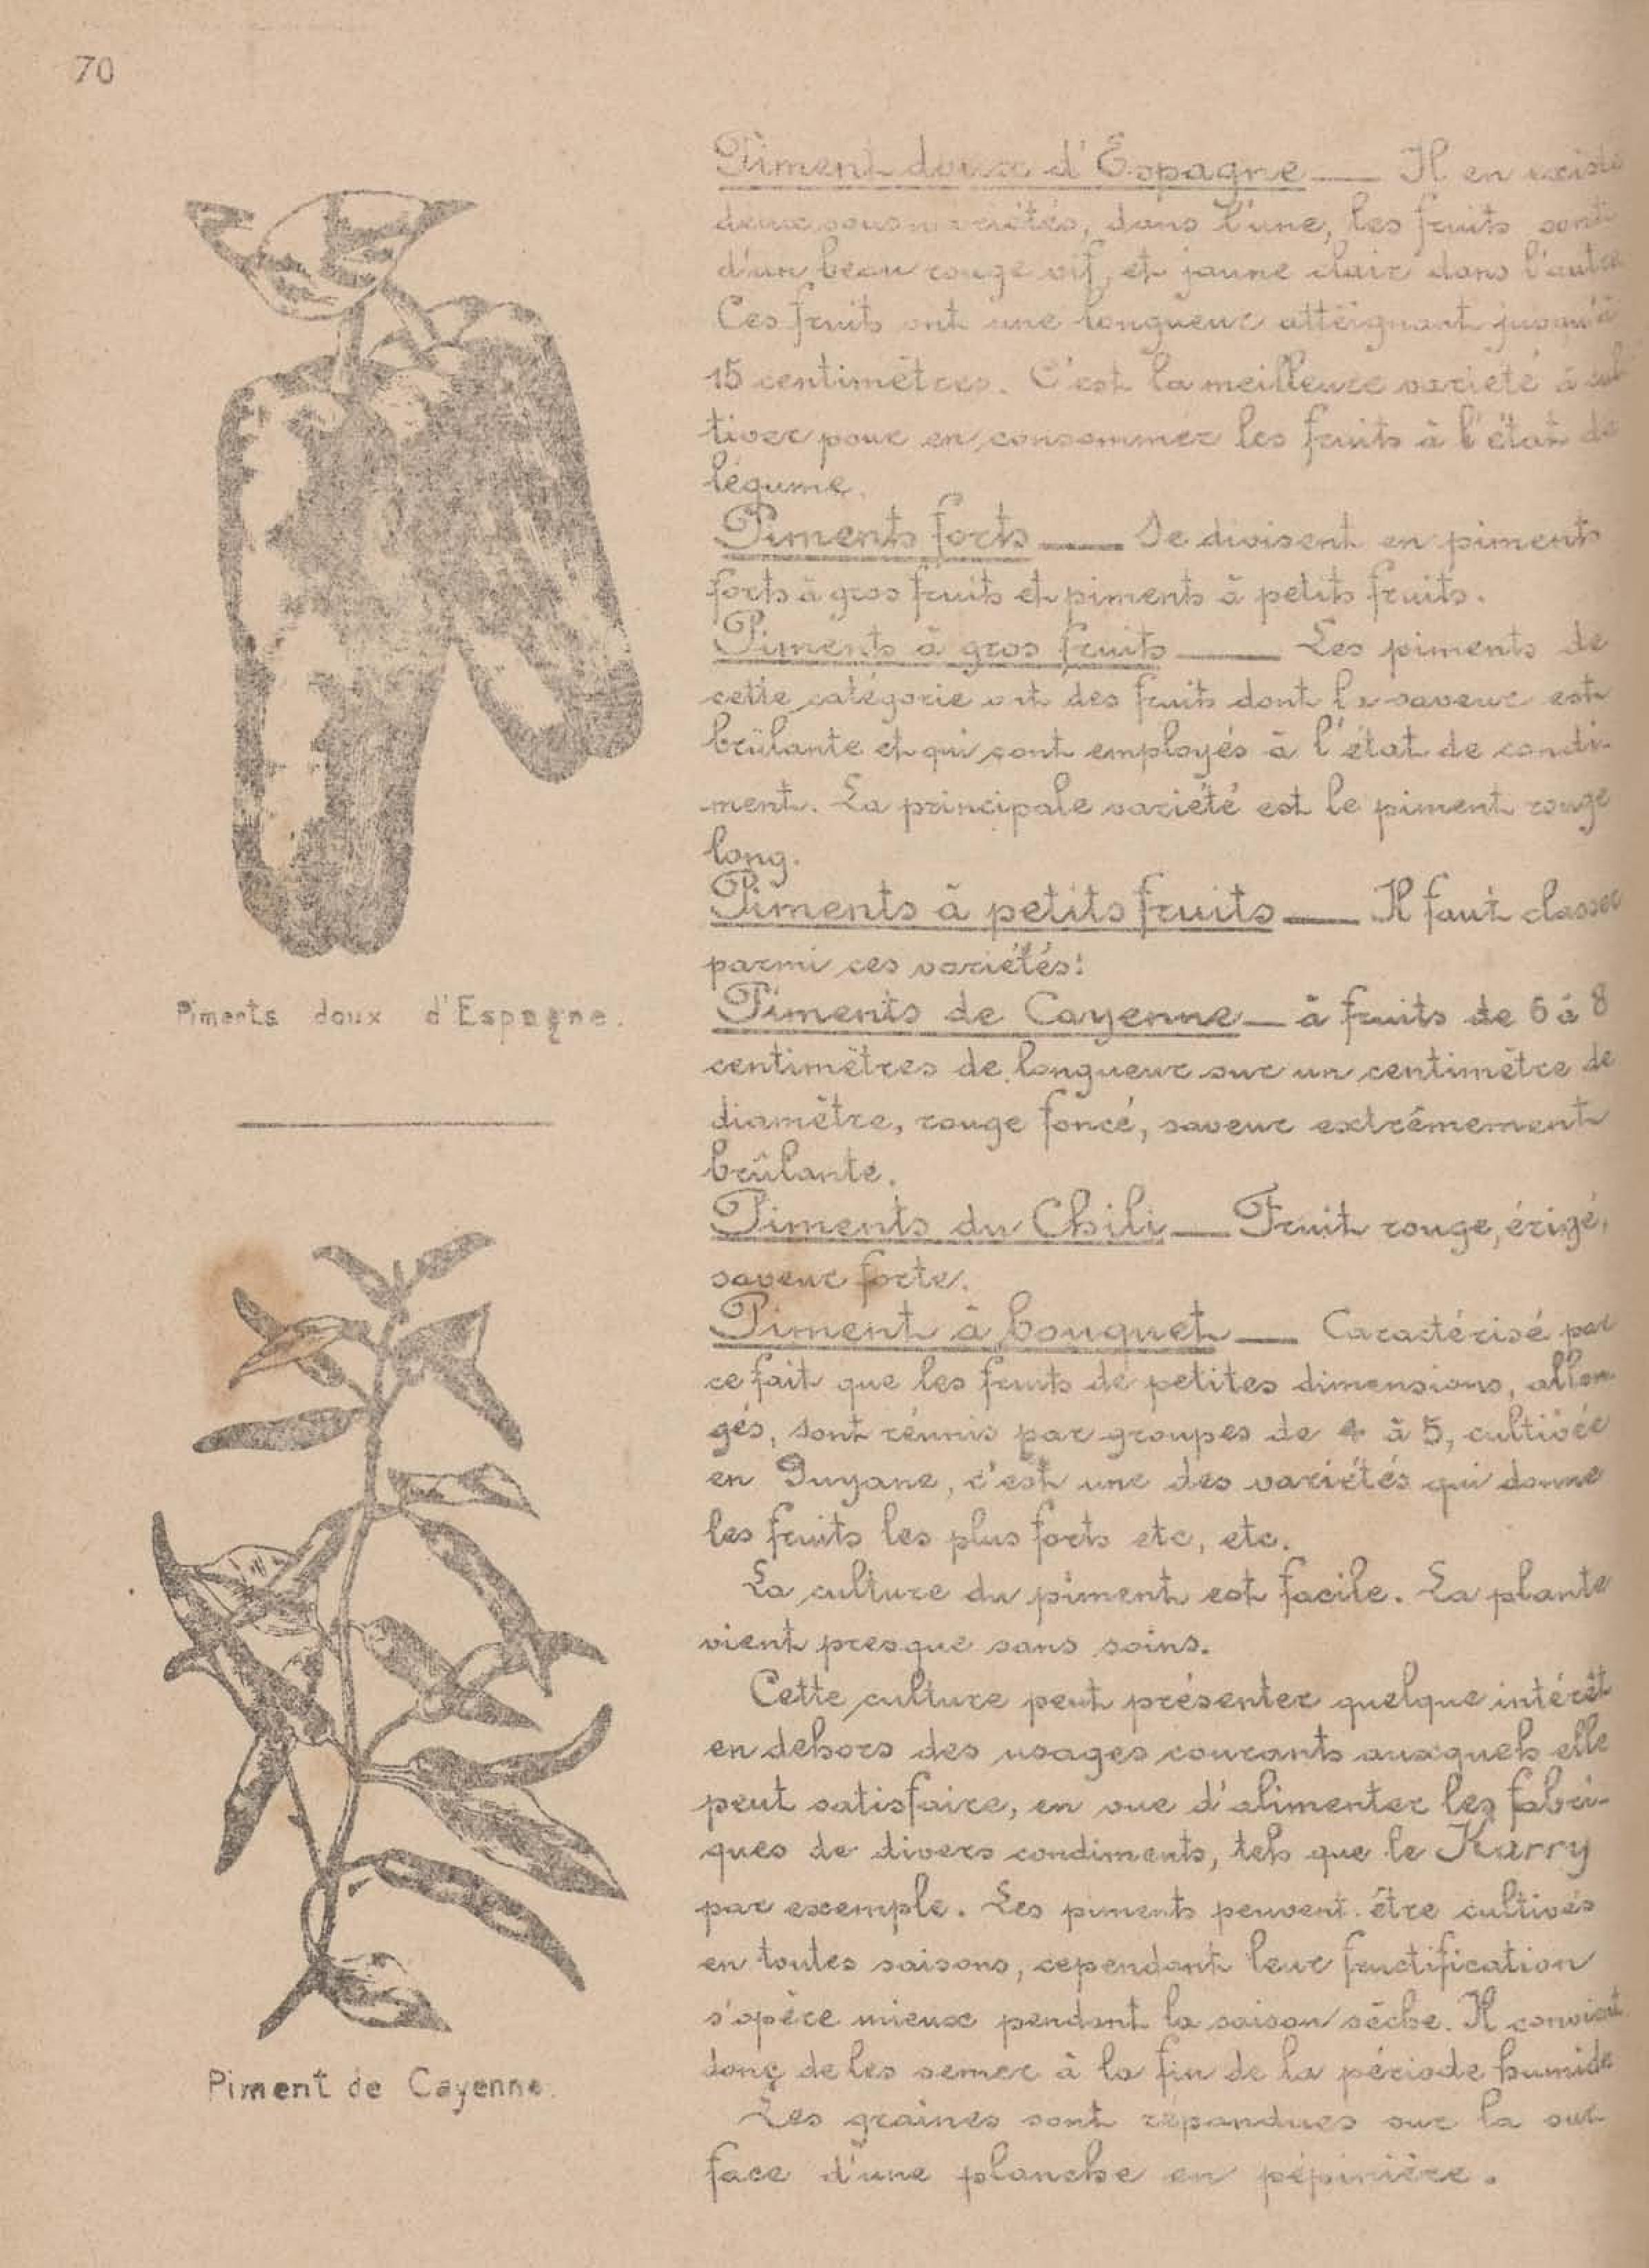 70
Piment doux d'Espagne — Il en existe
deux sous variétés, dans l'une, les fruits sont
d'un beau rouge vif, et jaune clair dans l'autre
Ces fruits ont une longueur atteignant jusqu'à
15 centimètres. C'est la meilleure variété à cul
tiver pour en consommer les fruits à l'état de
légume.
Piments forts — Se divisent en piments
forts à gros fruits et piments à petits fruits.
Piments à gros fruits — Les piments de
cette catégorie ont des fruits dont la saveur est
brûlante et qui sont employés à l'état de condi-
ment. La principale variété est le piment rouge
long.
Piments à petits fruits — Il faut classer
parmi ces variétés:
Piments de Cayenne — à fruits de 6 à 8
centimètres de longueur sur un centimètre de
diamètre, rouge foncé, saveur extrêmement
brûlante.
Piments du Chili — Fruit rouge, érigé,
saveur forte.
Piment à bouquet — Caractérisé par
ce fait que les fruits de petites dimensions, allon-
gés, sont réunis par groupes de 4 à 5, cultivée
en Guyane, c'est une des variétés qui donne
les fruits les plus forts etc, etc.
La culture du piment est facile. La plante
vient presque sans soins.
Cette culture peut présenter quelque intérêt
en dehors des usages courants auxquels elle
peut satisfaire, en vue d'alimenter les fabri-
ques de divers condiments, tels que le Karry
par exemple. Les piments peuvent être cultivés
en toutes saisons, cependant leur fructification
s'opère mieux pendant la saison sèche. Il convient
donc de les semer à la fin de la période humide
Les graines sont repandues sur la sur-
face d'une planche en pépinière.
Piments doux d'Espagne.
Piment de Cayenne.